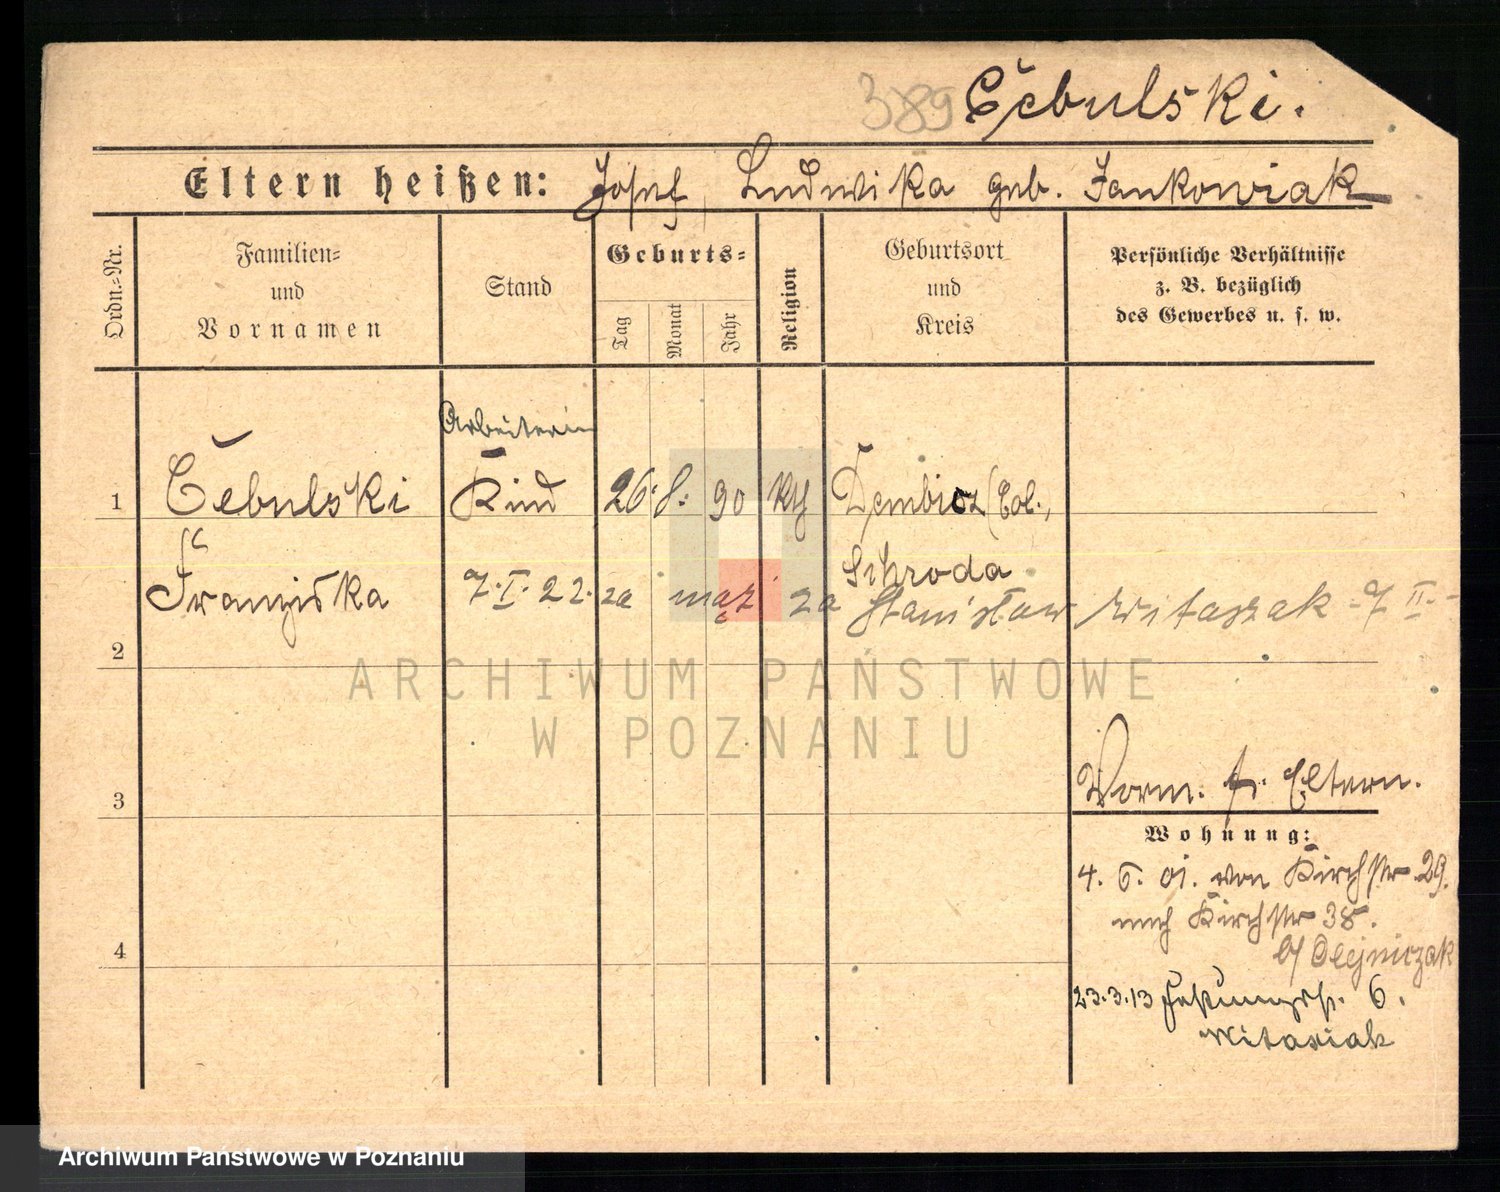 389 Cebulski.
Eltern heißen: Josef, Ludwika geb. Jankowiak
Ordn.-Nr.
Familien-
und
Vornamen
Stand
Geburts-
Tag
Monat
Jahr
Religion
Geburtsort
und
Kreis
Persönliche Verhältnisse
z. B. bezüglich
des Gewerbes u. s. w.
Arbeiterin
1 Cebulski Kind 26. 8. 90 kth Dembicz (Col.,
Schroda
Franziska 7. I. 22. za mąż za Stanisław Witaszak - 7 II. -
2
ARCHIWUM PAŃSTWOWE
W POZNANIU
3
Vorm. s. Eltern.
Wohnung:
4. 6. 01. von Kirchstr 29.
nach Kirchstr 38.
b/ Olejniczak
4
23.3.13 6.
Witasiak
Archiwum Państwowe w Poznaniu